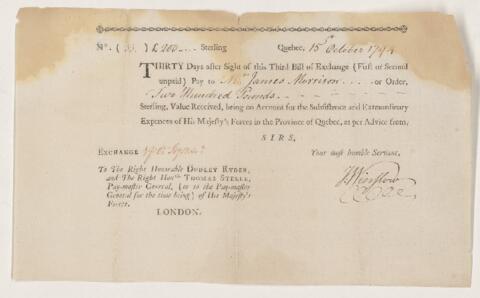 No. (33.) £ 200 .... Sterling Quebec, 15th October 1794
THIRTY Days after Sight of this Third Bill of Exchange (First or Second
unpaid) Pay to Mr. James Morrison .... or Order,
Two Hundred Pounds
Sterling, Value Received, being on Account for the Subsistence and Extraordinary
Expences of His Majesty's Forces in the Province of Quebec, as per Advice from,
SIRS,
EXCHANGE Your most humble Servant,
To The Right Honorable DUDLEY RYDER,
and The Right Honble THOMAS STEELE,
Pay-master General, (or to the Pay-master
General for the time being) of His Majesty's
Forces.
LONDON.
Winslow